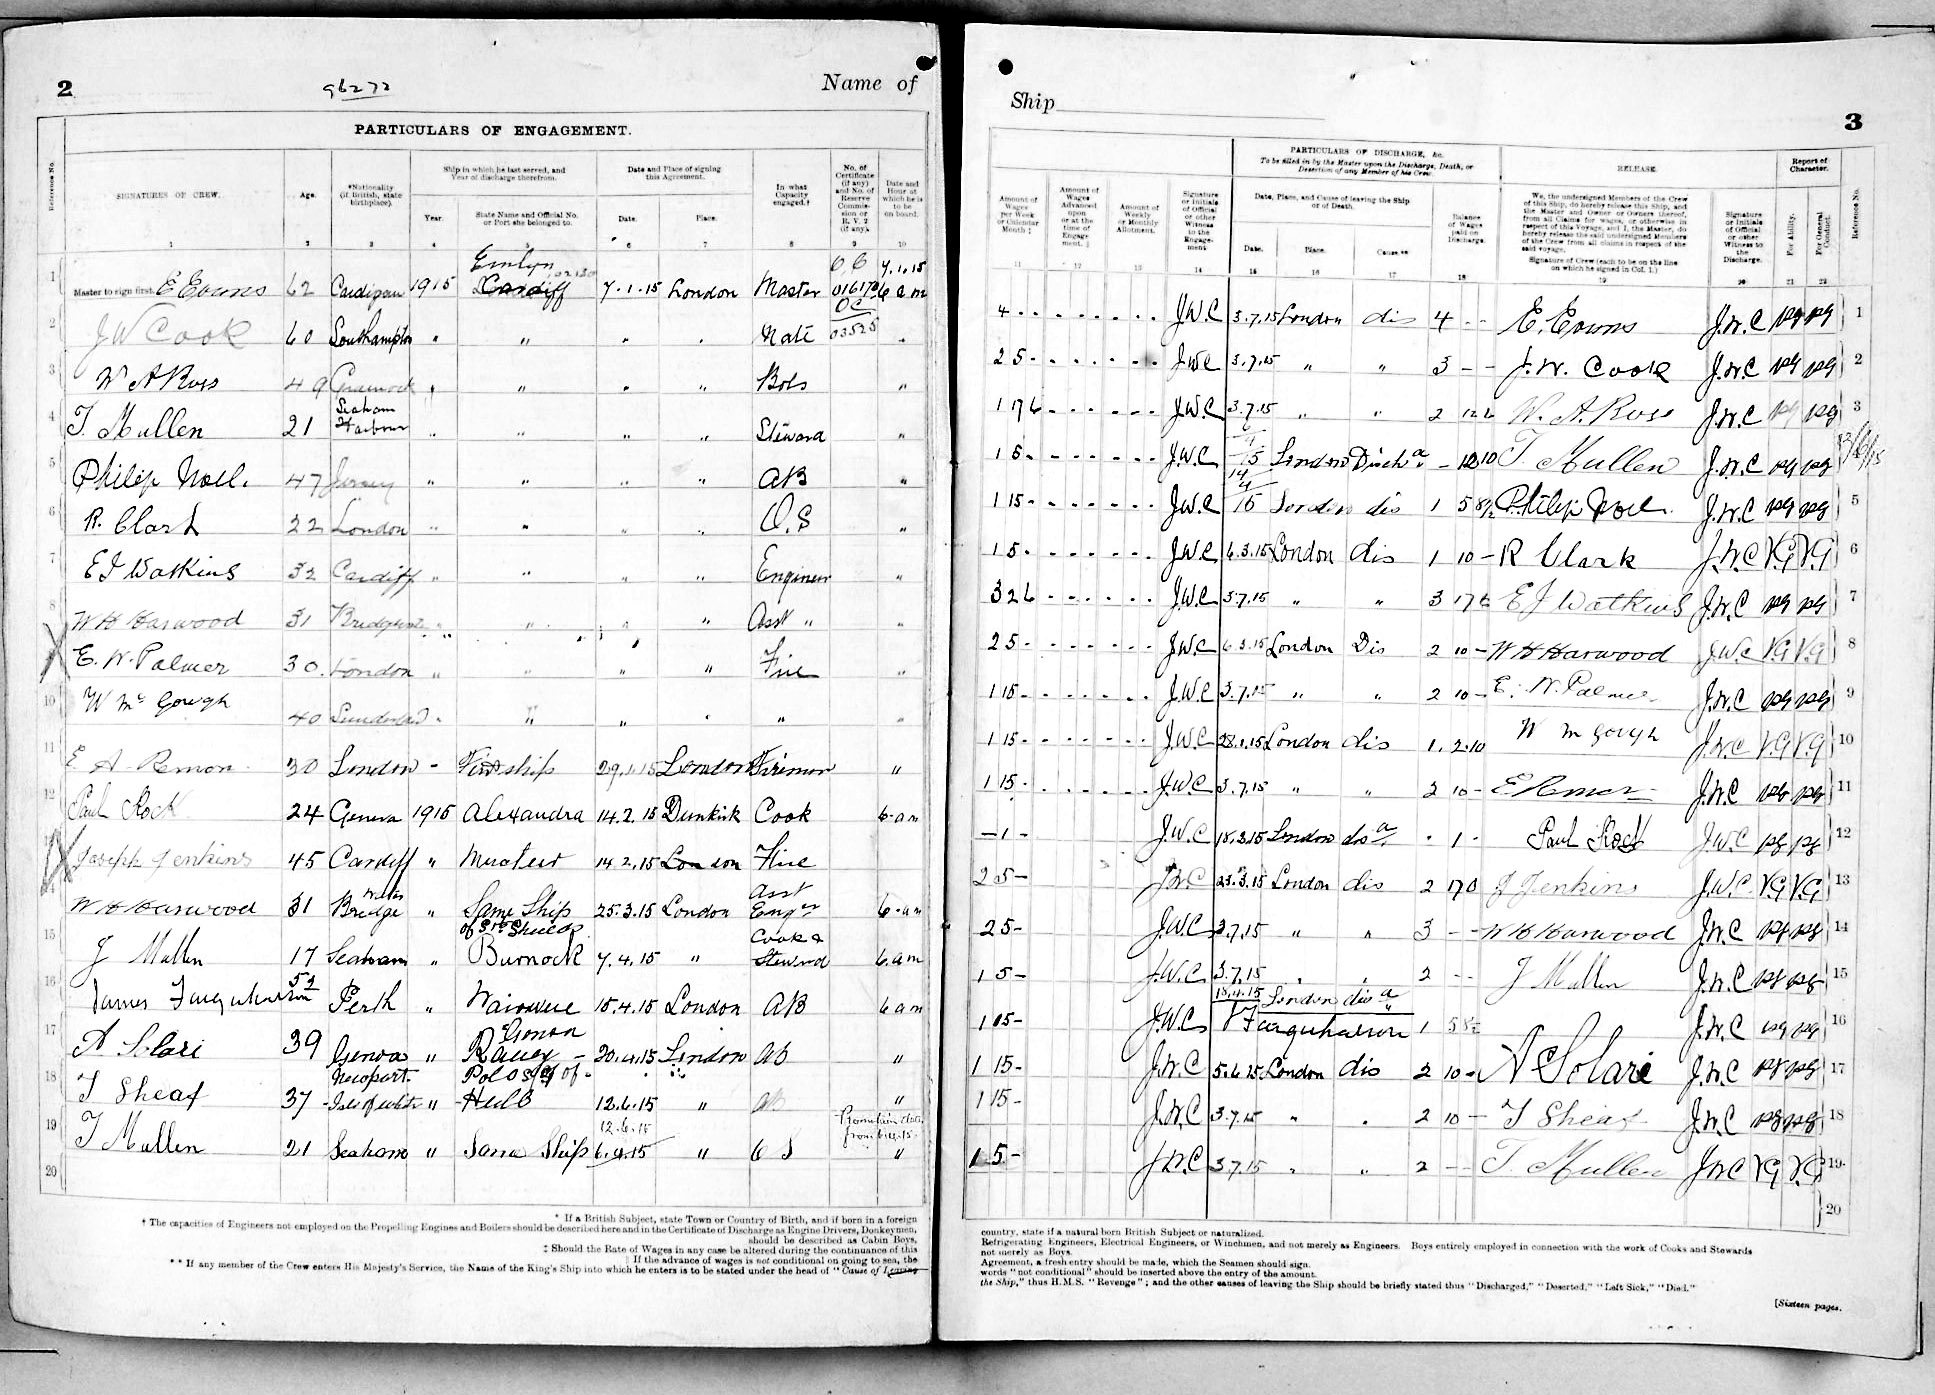 2
96272
Name of
PARTICULARS OF ENGAGEMENT.
Reference No.
SIGNATURES OF CREW.
Age.
*Nationality (if British, state birthplace).
Ship in which he last served, and Year of discharge therefrom.
Year.
State Name and Official No. or Port she belonged to.
Date and Place of signing this Agreement.
Date.
Place.
In what Capacity engaged.†
No. of Certificate (if any) and No. of Reserve Commission or R. V. 2 (if any).
Date and Hour at which he is to be on board.
1 2 3 4 5 6 7 8 9 10
1 Master to sign first. E Evans 62 Cardigan 1915 Emlyn Cardiff 7.1.15 London Master 01617 7.1.15 6 am
2 J W Cook 60 Southampton " " " " Mate OC 03525 "
3 W A Ross 49 Greenock " " " " Bols "
4 T. Mullen 21 Seaham Harbour " " " " Steward "
5 Philip Noel. 47 Jersey " " " " AB "
6 R. Clark 22 London " " " " O.S "
7 E J Watkins 32 Cardiff " " " " Engineer "
8 W H Harwood 31 " " " " Asst " "
E. W. Palmer 30 London " " " " Fire "
10 W Mc Gough 40 Sunderland " " " " " "
11 E A Remon 30 London - First ship 29.1.15 London Fireman "
12 Paul Rock 24 Geneva 1915 Alexandra 14.2.15 Dunkirk Cook 6 am
Joseph Jenkins 45 Cardiff " 14.2.15 London Fire
14 W H Harwood 31 Bridgwater " Same Ship 25.3.15 London Asst Engr 6 am
15 J Mullen 17 Seaham " Burnock 7.4.15 " Cook & Steward 6 am
16 James Farquharson 52 Perth " 15.4.15 London AB 6 am
17 A Solari 39 Genoa " 20.4.15 London AB "
18 T Sheaf 37 Newport Isle of White " Hull 12.6.15 " AB "
19 T Mullen 21 Seaham " Same Ship 12.6.15 " O S "
20
* If a British Subject, state Town or Country of Birth, and if born in a foreign
† The capacities of Engineers not employed on the Propelling Engines and Boilers should be described here and in the Certificate of Discharge as Engine Drivers, Donkeymen,
should be described as Cabin Boys,
‡ Should the Rate of Wages in any case be altered during the continuance of this
If the advance of wages is not conditional on going to sea, the
** If any member of the Crew enters His Majesty's Service, the Name of the King's Ship into which he enters is to be stated under the head of "Cause of Leaving
Ship
3
PARTICULARS OF DISCHARGE, &c.
To be filled in by the Master upon the Discharge, Death, or Desertion of any Member of his Crew.
RELEASE.
Report of Character.
Amount of Wages per Week or Calendar Month ‡
Amount of Wages Advanced upon or at the time of Engagement.
Amount of Weekly or Monthly Allotment.
Signature or Initials of Official or other Witness to the Engagement
Date, Place, and Cause of leaving the Ship or of Death.
Date.
Place.
Cause.**
Balance of Wages paid on Discharge.
We, the undersigned Members of the Crew of this Ship, do hereby release this Ship, and the Master and Owner or Owners thereof, from all Claims for wages, or otherwise in respect of this Voyage, and I, the Master, do hereby release the said undersigned Members of the Crew from all claims in respect of the said voyage.
Signature of Crew (each to be on the line on which he signed in Col. 1.)
Signature or Initials of Official or other Witness to the Discharge.
For Ability.
For General Conduct.
Reference No.
11 12 13 14 15 16 17 18 19 20 21 22
4 J.W.C 3.7.15 London dis 4 - - E. Evans J.W.C VG VG 1
2 5 - J.W.C 3.7.15 " " 3 - - J. W. Cook J.W.C VG VG 2
1 17 6 J.W.C 3.7.15 " " 2 12 6 W. A. Ross J.W.C VG VG 3
1 5 - J.W.C London Disch - 12 10 T Mullen J.W.C VG VG
1 15 - J.W.C 14/4/15 London dis 1 5 8½ Philip Noel. J.W.C VG VG 5
1 5 - J.W.C 6.3.15 London dis 1 10 - R Clark J.W.C V.G V.G 6
3 2 6 J.W.C 3.7.15 " " 3 17 6 E J Watkins J.W.C VG VG 7
2 5 - J.W.C 6.3.15 London Dis 2 10 - W H Harwood J.W.C V.G V.G 8
1 15 - J.W.C 3.7.15 " " 2 10 - E. W. Palmer J.W.C VG VG 9
1 15 - J.W.C 28.1.15 London dis 1. 2.10 W Mc Gough J.W.C V.G V.G 10
1 15 - J.W.C 3.7.15 " " 2 10 - E Remon J.W.C VG VG 11
- 1 - J.W.C 18.2.15 London dis - 1 - Paul Rock J.W.C VG VG 12
2 5 - J.W.C 23.3.15 London dis 2 17 0 J Jenkins J.W.C V.G V.G 13
2 5 - J.W.C 3.7.15 " " 3 - - W H Harwood J.W.C VG VG 14
1 5 - J.W.C 3.7.15 " " 2 - - J Mullen J.W.C VG VG 15
1 15 - J.W.C 18.4.15 London dis J Farquharson 1 5 8½ J.W.C VG VG 16
1 15 - J.W.C 5.6.15 London dis 2 10 - A Solari J.W.C VG VG 17
1 15 - J.W.C 3.7.15 " " 2 10 - T Sheaf J.W.C VG VG 18
1 5 - J.W.C 3.7.15 " " 2 - - T Mullen J.W.C V.G V.G 19
20
country, state if a natural born British Subject or naturalized.
Refrigerating Engineers, Electrical Engineers, or Winchmen, and not merely as Engineers. Boys entirely employed in connection with the work of Cooks and Stewards
not merely as Boys.
Agreement, a fresh entry should be made, which the Seamen should sign.
words "not conditional" should be inserted above the entry of the amount.
the Ship," thus H.M.S. "Revenge"; and the other causes of leaving the Ship should be briefly stated thus "Discharged," "Deserted," "Left Sick," "Died."
[Sixteen pages.